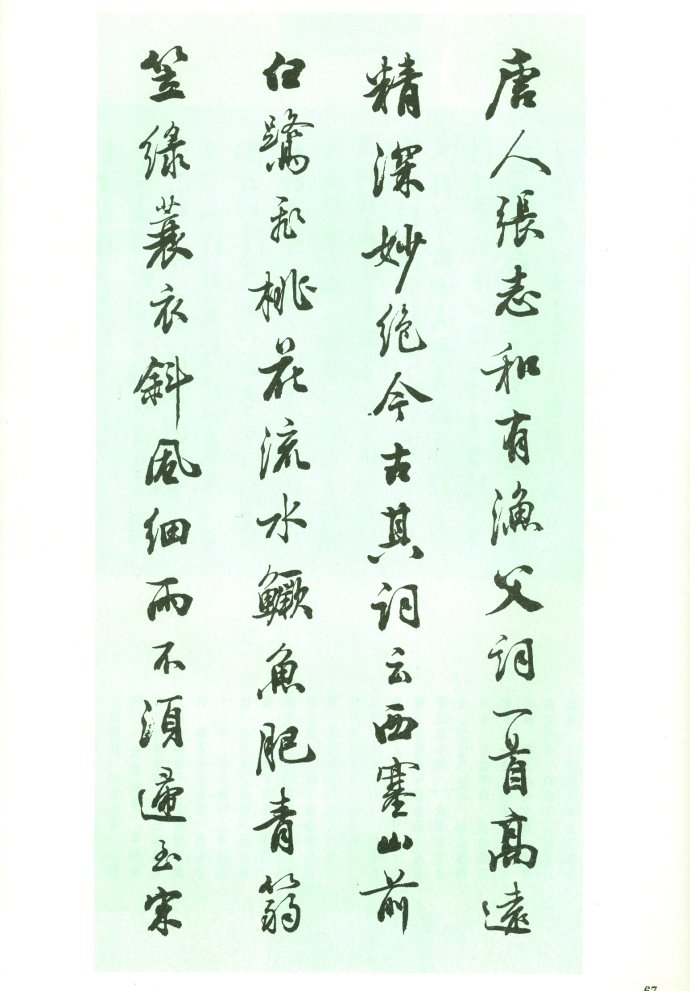 唐人張志和有漁父詞一首高遠
精深妙絶今古其詞云西塞山前
白鷺飛桃花流水鱖魚肥青篛
笠緑蓑衣斜風細雨不須歸至宋
67